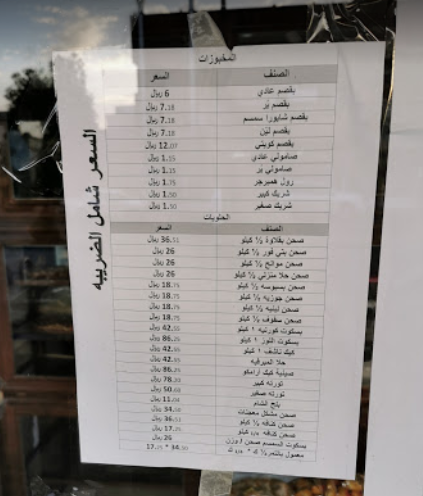 المخبوزات
الصنف السعر
بقصم عادي 6 ريال
بقصم بُر 7.18 ريال
بقصم شابورا سمسم 7.18 ريال
بقصم لبن 7.18 ريال
بقصم كويتي 12.07 ريال
صامولي عادي 1.15 ريال
صامولي بر 1.15 ريال
رول همبرجر 1.75 ريال
شريك كبير 1.50 ريال
شريك صغير 1.50 ريال
الحلويات
الصنف السعر
صحن بقلاوة ½ كيلو 36.51 ريال
صحن بتي فور ½ كيلو 26 ريال
صحن موالح ½ كيلو 26 ريال
صحن حلا منزلي ½ كيلو 26 ريال
صحن بسبوسه ½ كيلو 18.75 ريال
صحن جوزيه ½ كيلو 18.75 ريال
صحن لبنيه ½ كيلو 18.75 ريال
صحن سفوف ½ كيلو 18.75 ريال
بسكوت كورنيه ١ كيلو 42.55 ريال
بسكوت اللوز ١ كيلو 86.25 ريال
كيك ناشف ١ كيلو 42.55 ريال
حلا 42.55 ريال
صينية كيك أرامكو 86.25 ريال
تورته كبير ريال
تورته صغير ريال
بلح الشام ريال
صحن مشكل معجنات ريال
صحن كنافه ½ كيلو 36.51 ريال
صحن كنافه كيلو ريال
بسكوت السمسم صحن 26 ريال
معمول بالتمر
السعر شامل الضريبه